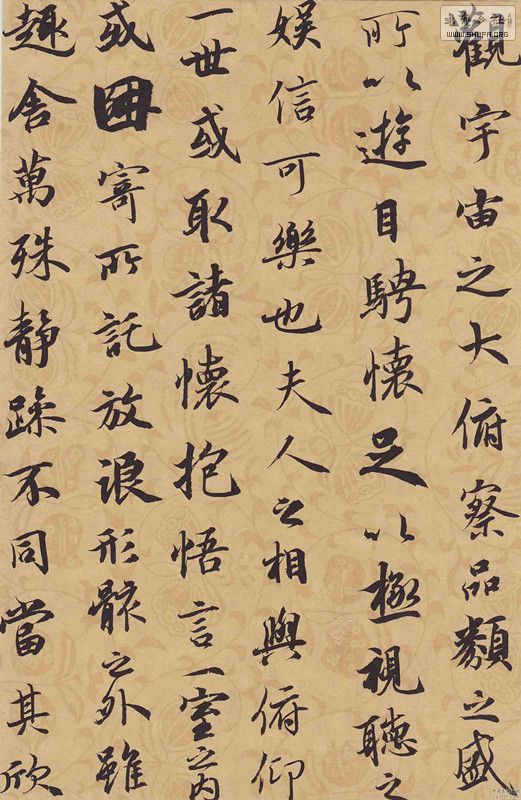 觀宇宙之大俯察品類之盛
所以遊目騁懷足以極視聽之
娛信可樂也夫人之相與俯仰
一世或取諸懷抱悟言一室之内
或因寄所託放浪形骸之外雖
趣舍萬殊靜躁不同當其欣
WWW.SHUFA.ORG